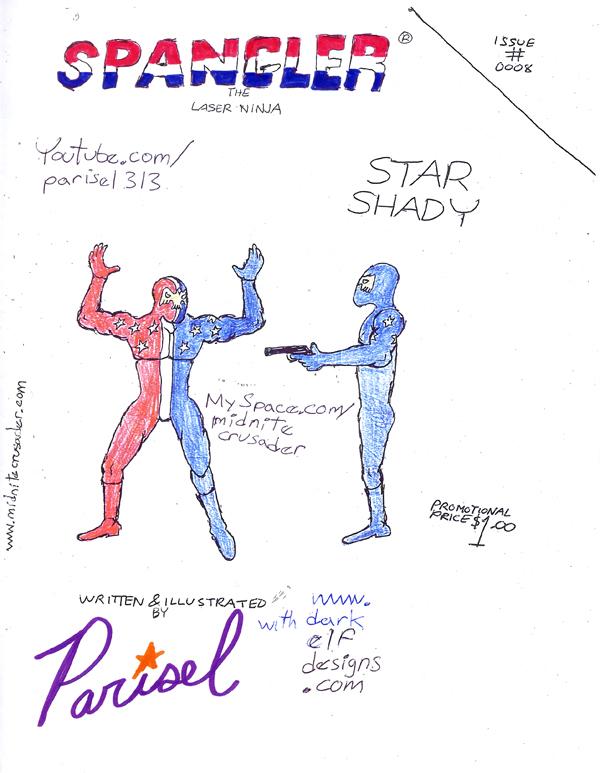 SPANGLER ®
THE
LASER NINJA
ISSUE
#
0008
Youtube.com/
parisel313
STAR
SHADY
MySpace.com/
midnite
crusader
www.midnitecrusader.com
PROMOTIONAL
PRICE $1.00
WRITTEN & ILLUSTRATED
BY
Parisel
with www.
dark
elf
designs
.com